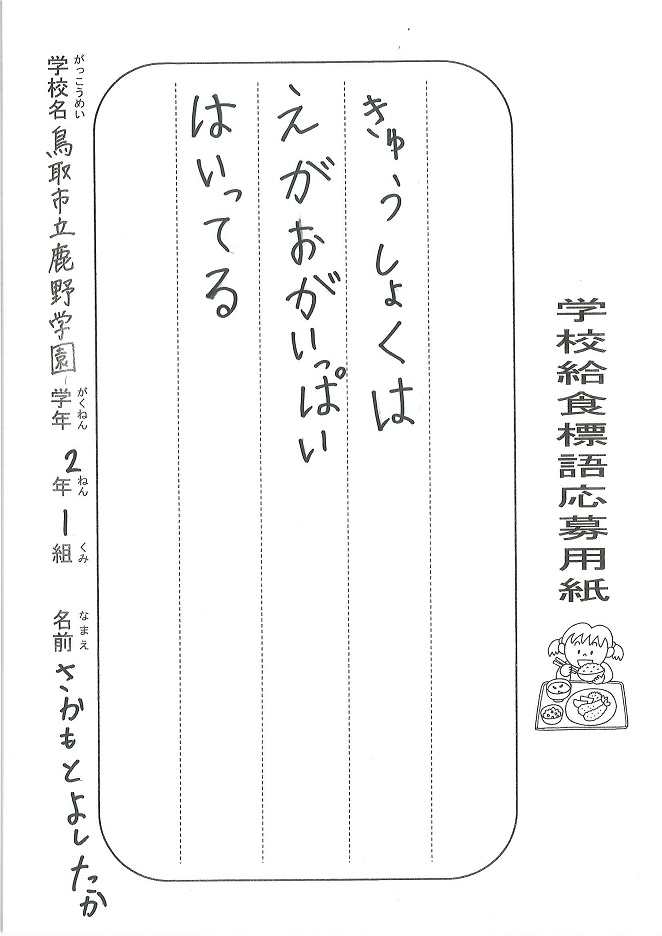 学校給食標語応募用紙
きゅうしょくは
えがおがいっぱい
はいってる
がっこうめい
学校名 鳥取市立鹿野学園
がくねん
学年
ねん
2年
くみ
1組
なまえ
名前 さかもとよしたか